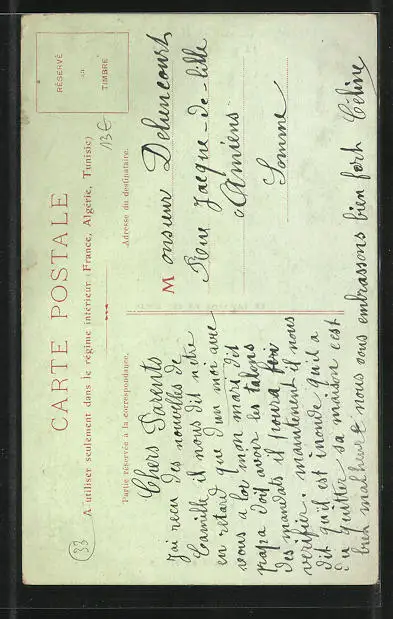 CARTE POSTALE
A utiliser seulement dans le régime intérieur (France, Algérie, Tunisie)
RÉSERVÉ
AU
TIMBRE
33
13€
Partie réservée à la correspondance.
Adresse du destinataire.
Chers Parents
J'ai recu des nouvelles de
Camille il nous dit n'être
en retard que d'un moi avec
vous a loi mon mari dit
papa doit avoir les talons
des mandats il poura
verifier. maintenant il nous
dit qu'il est inonde qu'il a
du quitter sa maison c'est
bien malheur & nous vous embrassons bien fort Céline
Monsieur Dehencourt
Rue Jacque-de-lille
Amiens
Somme